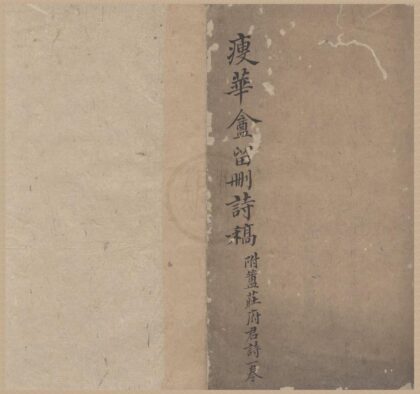 瘦華盦留刪詩稿
附簠莊府君詩一卷